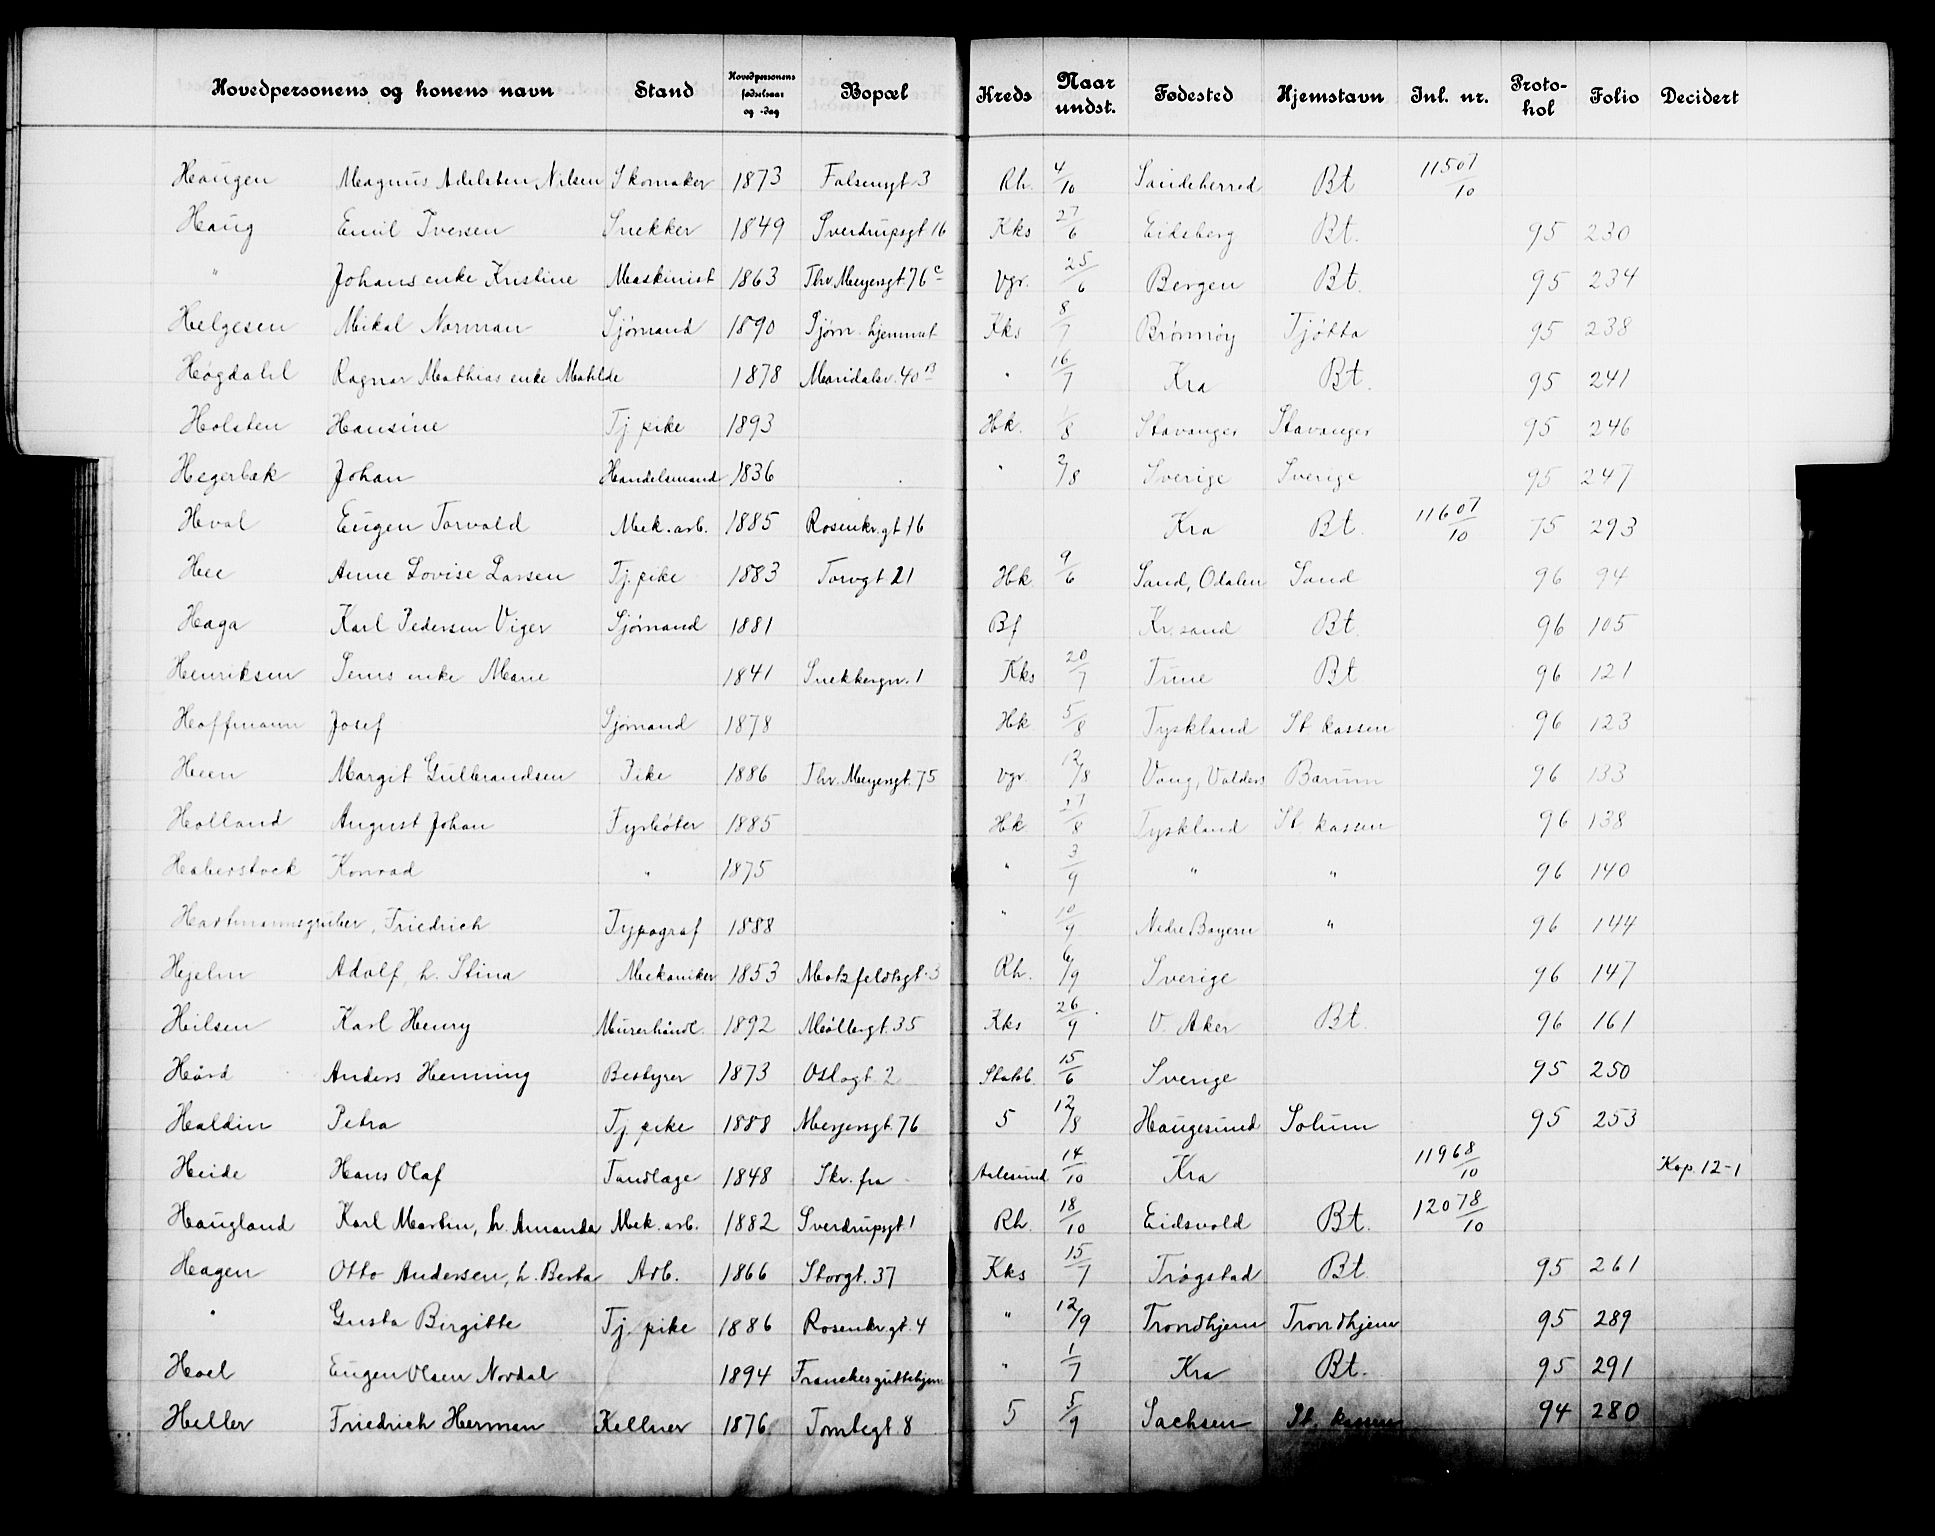 Hovedpersonens og konens navn Stand Hovedpersonens fødselsaar og -dag Bopæl Kreds Naar undst. Fødested Hjemstavn Inl. nr. Protokol Folio Decidert
Haugen Magnus Adelsten Nilsen Skomaker 1873 Falsensgt 3 Rh. 4/10 Sandeherred Bt 1150 7/10
Haug Emil Iversen Snekker 1849 Sverdrupsgt 16 Kks 27/6 Eidsberg Bt. 95 230
" Johans enke Kristine Maskinist 1863 Thv. Meyersgt 76 c Vgr. 25/6 Bergen Bt. 95 234
Helgesen Mikal Norman Sjømand 1890 Sjøm. hjemmet Kks 8/7 Brønnøy Tjøtta 95 238
Høgdahl Ragnar Mathias enke Matilde 1878 Maridalsv. 40 B " 16/7 Kra Bt. 95 241
Holsten Hansine Tj. pike 1893 Hk. 1/8 Stavanger Stavanger 95 246
Hegerbæk Johan Handelsmand 1836 " 2/8 Sverige Sverige 95 247
Hval Eugen Torvald Mek. arb. 1885 Rosenkr. gt 16 Kra Bt. 1160 7/10 75 293
Hee Anne Lovise Larsen Tj. pike 1883 Torvgt 21 Hk. 9/6 Sand, Odalen Sand 96 94
Haga Karl Pedersen Viger Sjømand 1881 Bf Kr. sand Bt. 96 105
Henriksen Jens enke Marie 1841 Snekkergn. 1 Kks 20/7 Tune Bt 96 121
Hoffmann Josef Sjømand 1878 Hk 5/8 Tyskland St. kassen 96 123
Heen Margit Gulbrandsen Pike 1886 Thv. Meyersgt. 75 Vgr. 12/8 Vang, Valders Bærum 96 133
Holland August Johan Fyrbøter 1885 Hk 27/8 Tyskland St. kassen 96 138
Haberstock Konrad " 1875 " 3/9 " " 96 140
Hartmannsgruber, Friedrich Typograf 1888 " 10/9 Nedre Bayern " 96 144
Hjelm Adolf, h. Stina Mekaniker 1853 Motzfeldtsgt. 3 Rh. 6/9 Sverige 96 147
Heilsen Karl Henry Murerhåndl. 1892 Møllergt. 35 Kks 26/9 V. Aker Bt 96 161
Hård Anders Henning Bestyrer 1873 Oslogt 2 Stabb. 15/6 Sverige 95 250
Haldin Petra Tj. pike 1888 Meyersgt. 76 5 12/8 Haugesund Solum 95 253
Heide Hans Olaf Tandlæge 1848 Skr. fra Aalesund 14/10 Kra 1196 8/10 Kop. 12-1
Haugland Karl Martin, h. Amanda Mek. arb. 1882 Sverdrupsgt 1 Rh. 18/10 Eidsvold Bt. 1207 8/10
Hagen Otto Andersen, h. Berta Arb. 1866 Storgt. 37 Kks 15/7 Trøgstad Bt. 95 261
" Gusta Birgitte Tj. pike 1886 Rosenkr. gt. 4 " 12/9 Trondhjem Trondhjem 95 289
Hoel Eugen Olsen Nordal 1894 Franckes guttehjem " 1/7 Kra Bt. 95 291
Heller Friedrich Herman Kellner 1876 Tomtegt 8 5 5/9 Sachsen St. kassen 94 280